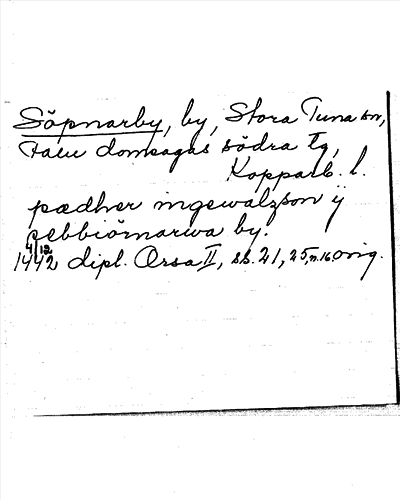 Söpnarby, by, Stora Tuna sn,
Falu domsagas södra tg,
Kopparb. l.
pædher ingewalzson ÿ
sebbiörnarwa by.
4/12
1442 dipl. Orsa II, sb. 21, 25, n. 16 orig.